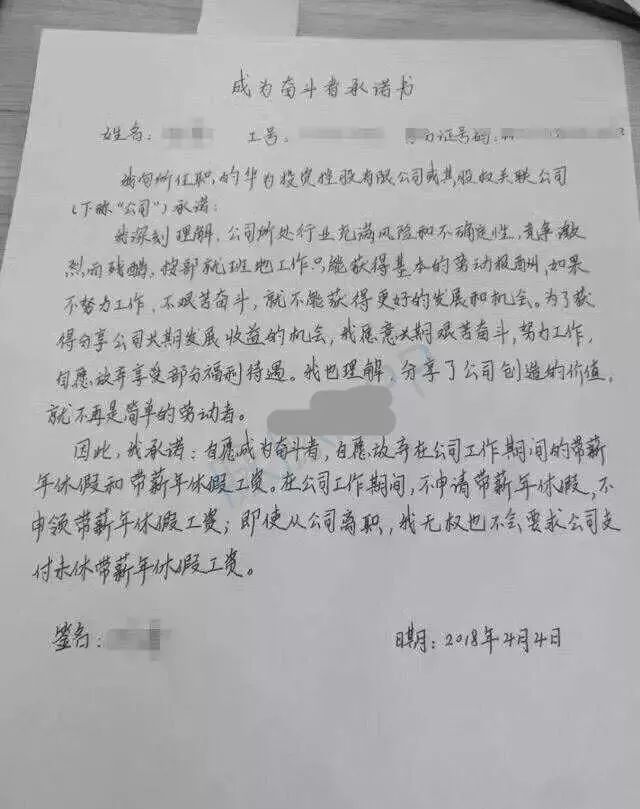 成为奋斗者承诺书
姓名： 工号： 身份证号码：
我向所任职的华为投资控股有限公司或其股权关联公司
（下称“公司”）承诺：
我深刻理解，公司所处行业充满风险和不确定性，竞争激
烈而残酷，按部就班地工作只能获得基本的劳动报酬，如果
不努力工作，不艰苦奋斗，就不能获得更好的发展和机会。为了获
得分享公司长期发展收益的机会，我愿意长期艰苦奋斗，努力工作，
自愿放弃享受部分福利待遇。我也理解，分享了公司创造的价值，
就不再是简单的劳动者。
因此，我承诺：自愿成为奋斗者，自愿放弃在公司工作期间的带薪
年休假和带薪年休假工资。在公司工作期间，不申请带薪年休假，不
申领带薪年休假工资；即使从公司离职，我无权也不会要求公司支
付未休带薪年休假工资。
签名： 日期：2018年4月4日